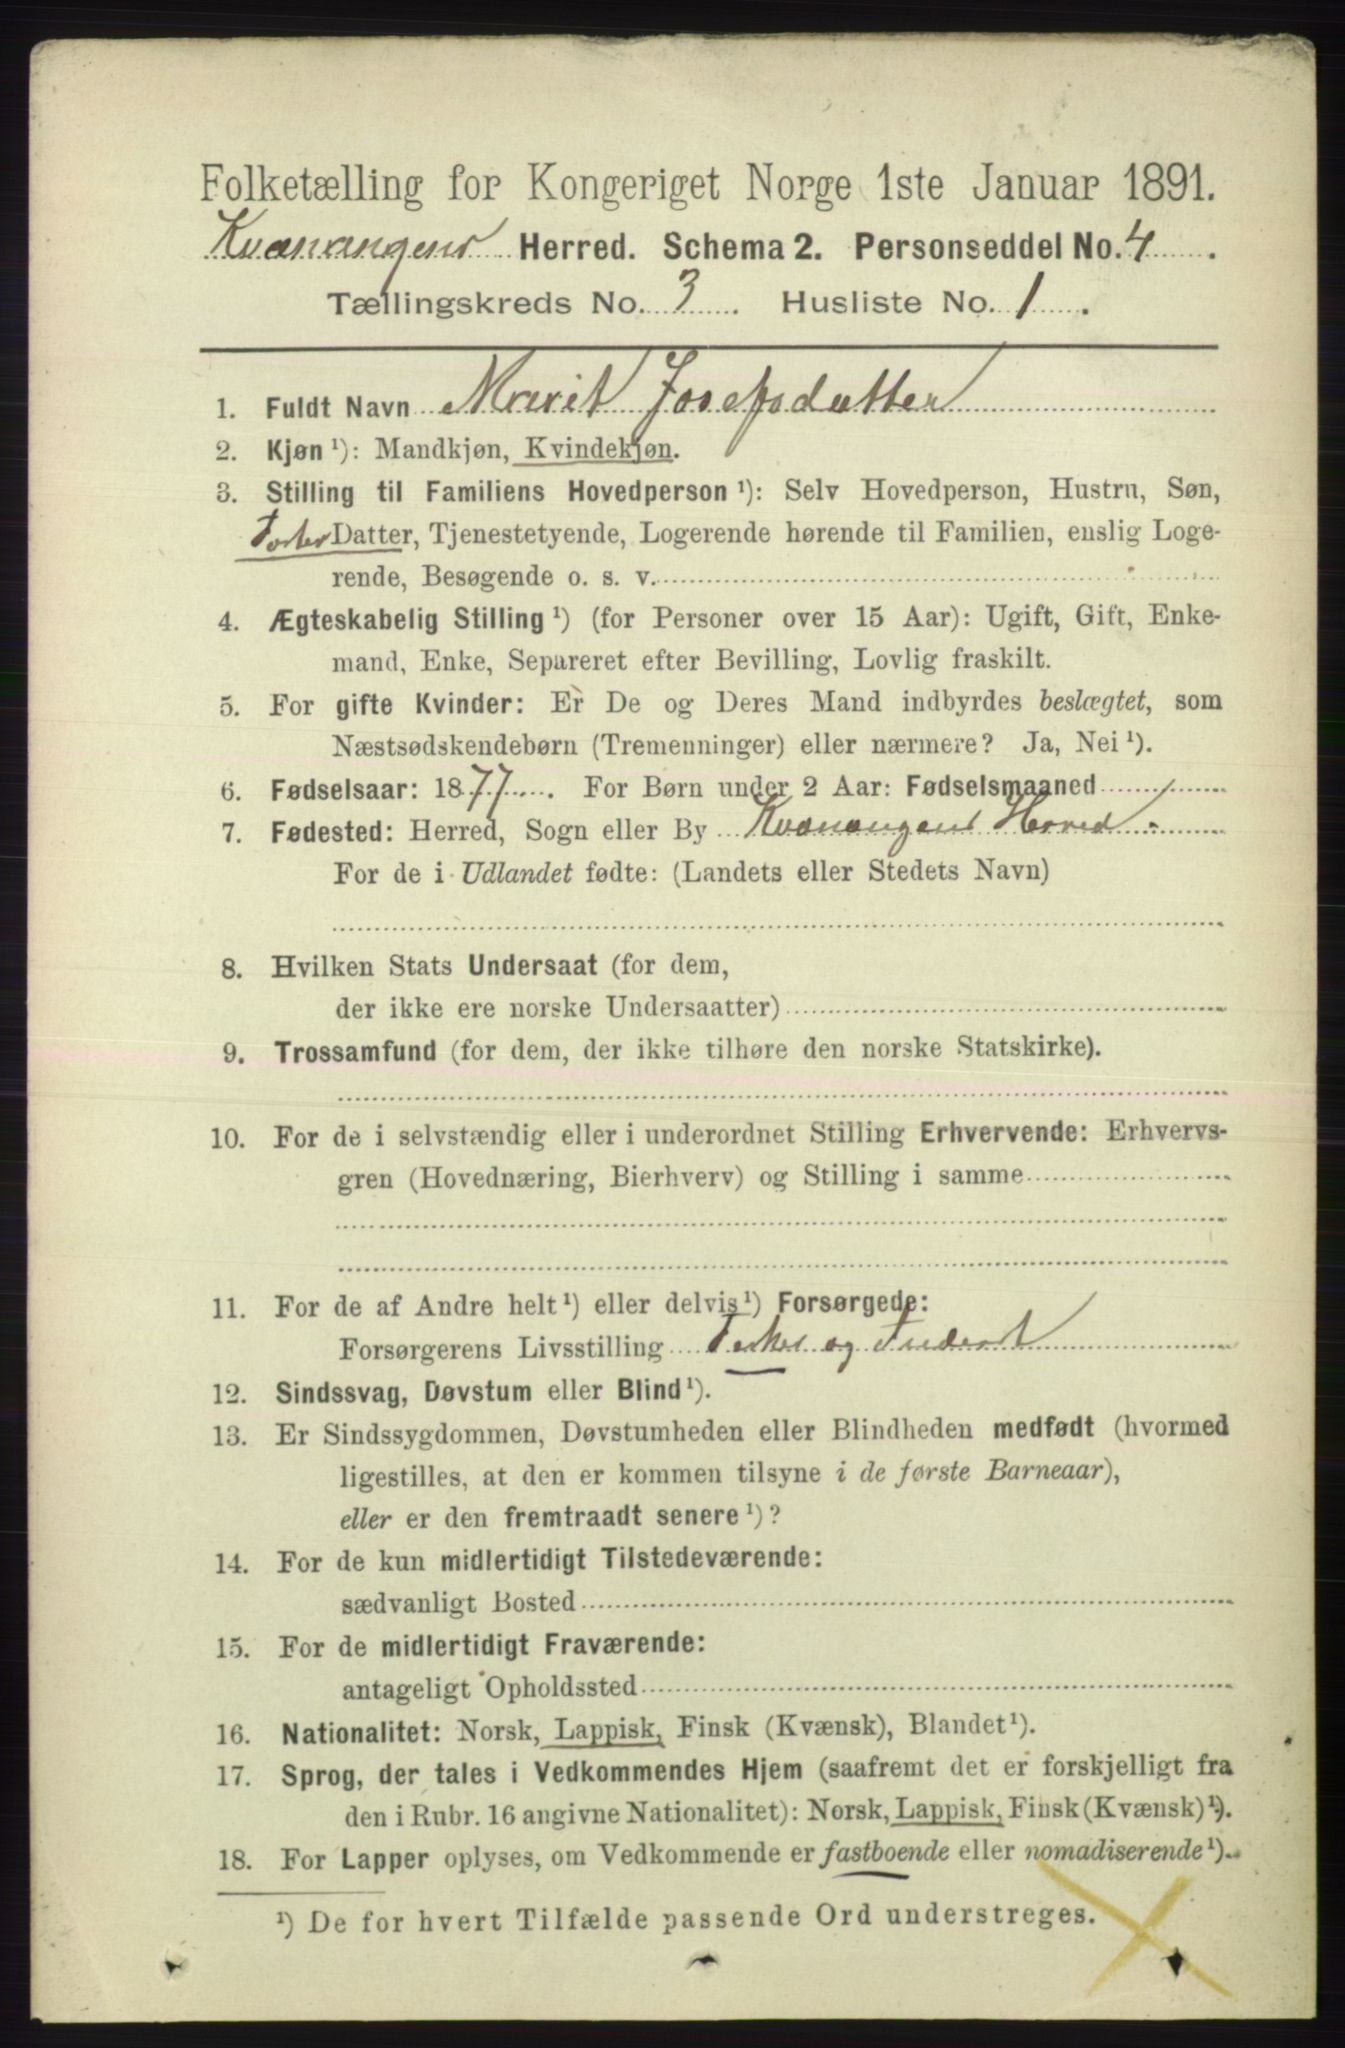 Folketælling for Kongeriget Norge 1ste Januar 1891.
Kvænangens Herred. Schema 2. Personseddel No. 4.
Tællingskreds No. 3. Husliste No. 1.
1. Fuldt Navn Marit Josefsdatter
2. Kjøn ¹): Mandkjøn, Kvindekjøn.
3. Stilling til Familiens Hovedperson ¹): Selv Hovedperson, Hustru, Søn,
Foster Datter, Tjenestetyende, Logerende hørende til Familien, enslig Loge-
rende, Besøgende o. s. v.
4. Ægteskabelig Stilling ¹) (for Personer over 15 Aar): Ugift, Gift, Enke-
mand, Enke, Separeret efter Bevilling, Lovlig fraskilt.
5. For gifte Kvinder: Er De og Deres Mand indbyrdes beslægtet, som
Næstsødskendebørn (Tremenninger) eller nærmere? Ja, Nei ¹).
6. Fødselsaar: 1877. For Børn under 2 Aar: Fødselsmaaned
7. Fødested: Herred, Sogn eller By Kvænangens Herred.
For de i Udlandet fødte: (Landets eller Stedets Navn)
8. Hvilken Stats Undersaat (for dem,
der ikke ere norske Undersaatter)
9. Trossamfund (for dem, der ikke tilhøre den norske Statskirke).
10. For de i selvstændig eller i underordnet Stilling Erhvervende: Erhvervs-
gren (Hovednæring, Bierhverv) og Stilling i samme
11. For de af Andre helt ¹) eller delvis ¹) Forsørgede:
Forsørgerens Livsstilling Fisker og
12. Sindssvag, Døvstum eller Blind ¹).
13. Er Sindssygdommen, Døvstumheden eller Blindheden medfødt (hvormed
ligestilles, at den er kommen tilsyne i de første Barneaar),
eller er den fremtraadt senere ¹)?
14. For de kun midlertidigt Tilstedeværende:
sædvanligt Bosted
15. For de midlertidigt Fraværende:
antageligt Opholdssted
16. Nationalitet: Norsk, Lappisk, Finsk (Kvænsk), Blandet ¹).
17. Sprog, der tales i Vedkommendes Hjem (saafremt det er forskjelligt fra
den i Rubr. 16 angivne Nationalitet): Norsk, Lappisk, Finsk (Kvænsk) ¹).
18. For Lapper oplyses, om Vedkommende er fastboende eller nomadiserende ¹).
¹) De for hvert Tilfælde passende Ord understreges.